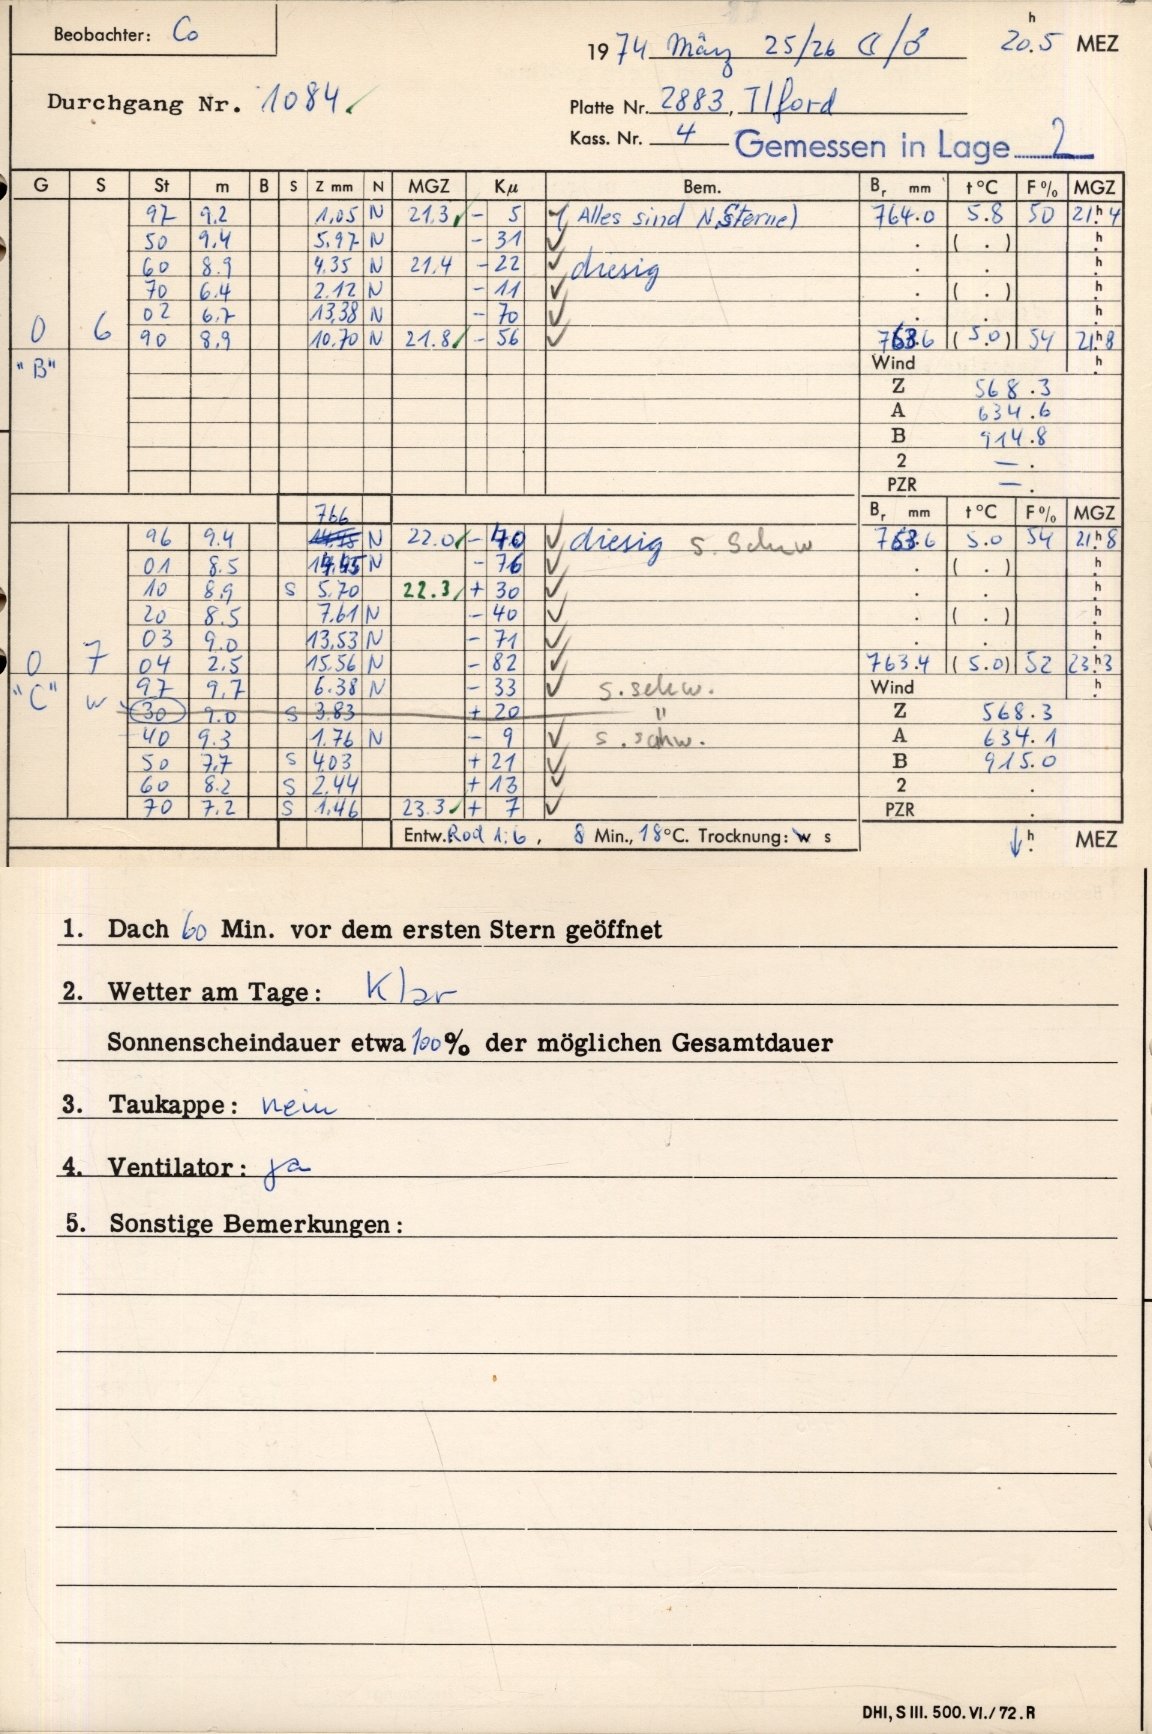 Beobachter: Co
1974 März 25/26 ☾/♂ 20.5 h MEZ
Durchgang Nr. 1084 ✓
Platte Nr. 2883, Ilford
Kass. Nr. 4 Gemessen in Lage 2
G S St m B S Z mm N MGZ Kμ Bem. Br mm t°C F% MGZ
97 9.2 1,05 N 21.3 ✓ - 5 ✓ (Alles sind N.Sterne) 764.0 5.8 50 21h4
50 9.4 5.97 N - 31 ✓ . ( . ) h
60 8.9 4.35 N 21.4 - 22 ✓ diesig . . h
70 6.4 2.12 N - 11 ✓ . ( . ) h
02 6.7 13,38 N - 70 ✓ . . h
0 6 90 8,9 10.70 N 21.8 ✓ - 56 ✓ 763.6 (5.0) 54 21h8
"B" Wind h
Z 568.3
A 634.6
B 914.8
2 — .
PZR — .
766 Br mm t°C F% MGZ
96 9.4 N 22.0 ✓ - 40 ✓ diesig s. Schw 763.6 5.0 54 21h8
01 8.5 14,45 N - 76 ✓ . ( . ) h
10 8,9 S 5.70 22.3 ✓ + 30 ✓ . . h
20 8.5 7.61 N - 40 ✓ . ( . ) h
03 9.0 13,53 N - 71 ✓ . . h
0 7 04 2.5 15.56 N - 82 ✓ 763.4 (5.0) 52 23h3
"C" w 97 9,7 6.38 N - 33 ✓ s. schw. Wind h
30 9.0 S 3.83 + 20 " Z 568.3
40 9.3 1.76 N - 9 ✓ s. schw. A 634.1
50 7,7 S 4.03 + 21 ✓ B 915.0
60 8.2 S 2.44 + 13 ✓ 2 .
70 7.2 S 1,46 23.3 ✓ + 7 ✓ PZR .
Entw. Rod 1:6, 8 Min., 18°C. Trocknung: w s ↓ h. MEZ
1. Dach 60 Min. vor dem ersten Stern geöffnet
2. Wetter am Tage: Klar
Sonnenscheindauer etwa 100% der möglichen Gesamtdauer
3. Taukappe: nein
4. Ventilator: ja
5. Sonstige Bemerkungen:
DHI, S III. 500. VI./72. R